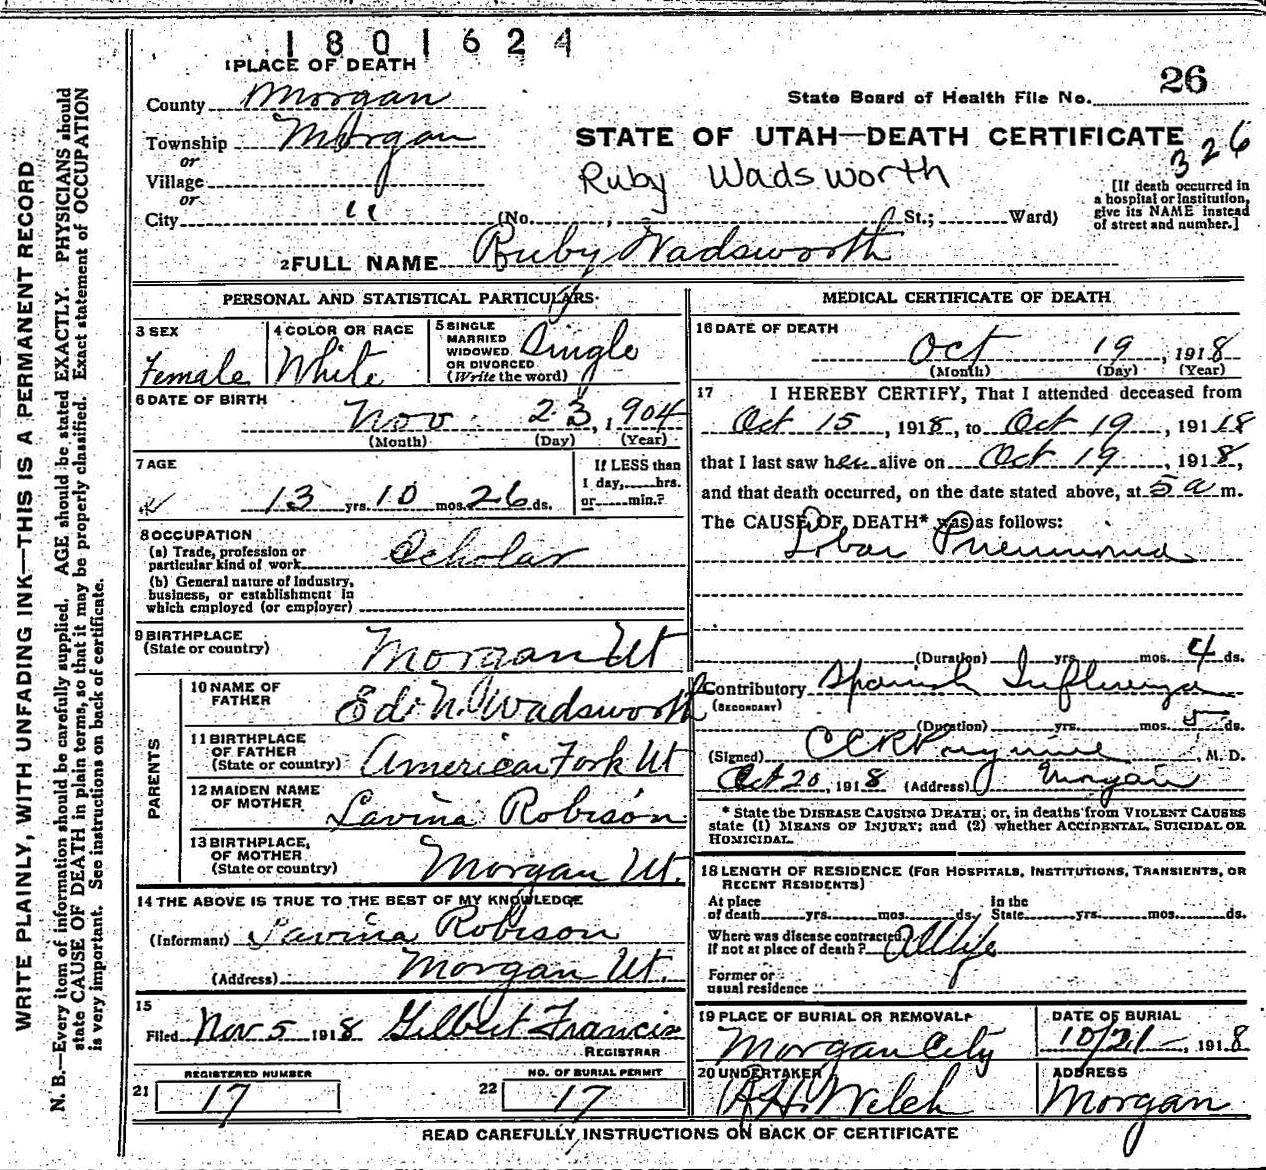 1801624
1 PLACE OF DEATH
26
County Morgan
State Board of Health File No.
Township Morgan
STATE OF UTAH—DEATH CERTIFICATE
326
or
Village
Ruby Wadsworth
or
City "
(No. , St.; Ward)
[If death occurred in
a hospital or institution,
give its NAME instead
of street and number.]
2 FULL NAME Ruby Wadsworth
WRITE PLAINLY, WITH UNFADING INK—THIS IS A PERMANENT RECORD
N. B.—Every item of information should be carefully supplied. AGE should be stated EXACTLY. PHYSICIANS should
state CAUSE OF DEATH in plain terms, so that it may be properly classified. Exact statement of OCCUPATION
is very important. See instructions on back of certificate.
PERSONAL AND STATISTICAL PARTICULARS
3 SEX
Female
4 COLOR OR RACE
White
5 SINGLE
MARRIED
WIDOWED
OR DIVORCED
(Write the word)
Single
6 DATE OF BIRTH
Nov 23, 1904
(Month) (Day) (Year)
7 AGE
13 yrs. 10 mos. 26 ds.
If LESS than
1 day, hrs.
or min.?
8 OCCUPATION
(a) Trade, profession or
particular kind of work Scholar
(b) General nature of Industry,
business, or establishment in
which employed (or employer)
9 BIRTHPLACE
(State or country) Morgan Ut
PARENTS
10 NAME OF
FATHER Ed. N. Wadsworth
11 BIRTHPLACE
OF FATHER
(State or country) American Fork Ut
12 MAIDEN NAME
OF MOTHER Lavina Robison
13 BIRTHPLACE,
OF MOTHER
(State or country) Morgan Ut.
14 THE ABOVE IS TRUE TO THE BEST OF MY KNOWLEDGE
(Informant) Lavina Robison
(Address) Morgan Ut.
15
Filed Nov 5 1918 Gilbert Francis
REGISTRAR
21 REGISTERED NUMBER
17
22 NO. OF BURIAL PERMIT
17
MEDICAL CERTIFICATE OF DEATH
16 DATE OF DEATH
Oct 19, 1918
(Month) (Day) (Year)
17 I HEREBY CERTIFY, That I attended deceased from
Oct 15, 1918, to Oct 19, 19118
that I last saw her alive on Oct 19, 1918,
and that death occurred, on the date stated above, at 5 a m.
The CAUSE OF DEATH* was as follows:
Lobar Pneumonia
(Duration) yrs. mos. 4 ds.
Contributory Spanish Influenza
(SECONDARY)
(Duration) yrs. mos. 5 ds.
(Signed) , M. D.
Oct 20, 1918 (Address) Morgan
* State the DISEASE CAUSING DEATH; or, in deaths from VIOLENT CAUSES
state (1) MEANS OF INJURY; and (2) whether ACCIDENTAL, SUICIDAL OR
HOMICIDAL.
18 LENGTH OF RESIDENCE (FOR HOSPITALS, INSTITUTIONS, TRANSIENTS, OR
RECENT RESIDENTS)
At place
of death yrs. mos. ds.
In the
State yrs. mos. ds.
Where was disease contracted,
if not at place of death? All life
Former or
usual residence
19 PLACE OF BURIAL OR REMOVAL
Morgan City
DATE OF BURIAL
10/21, 1918
20 UNDERTAKER
H. Welch
ADDRESS
Morgan
READ CAREFULLY INSTRUCTIONS ON BACK OF CERTIFICATE